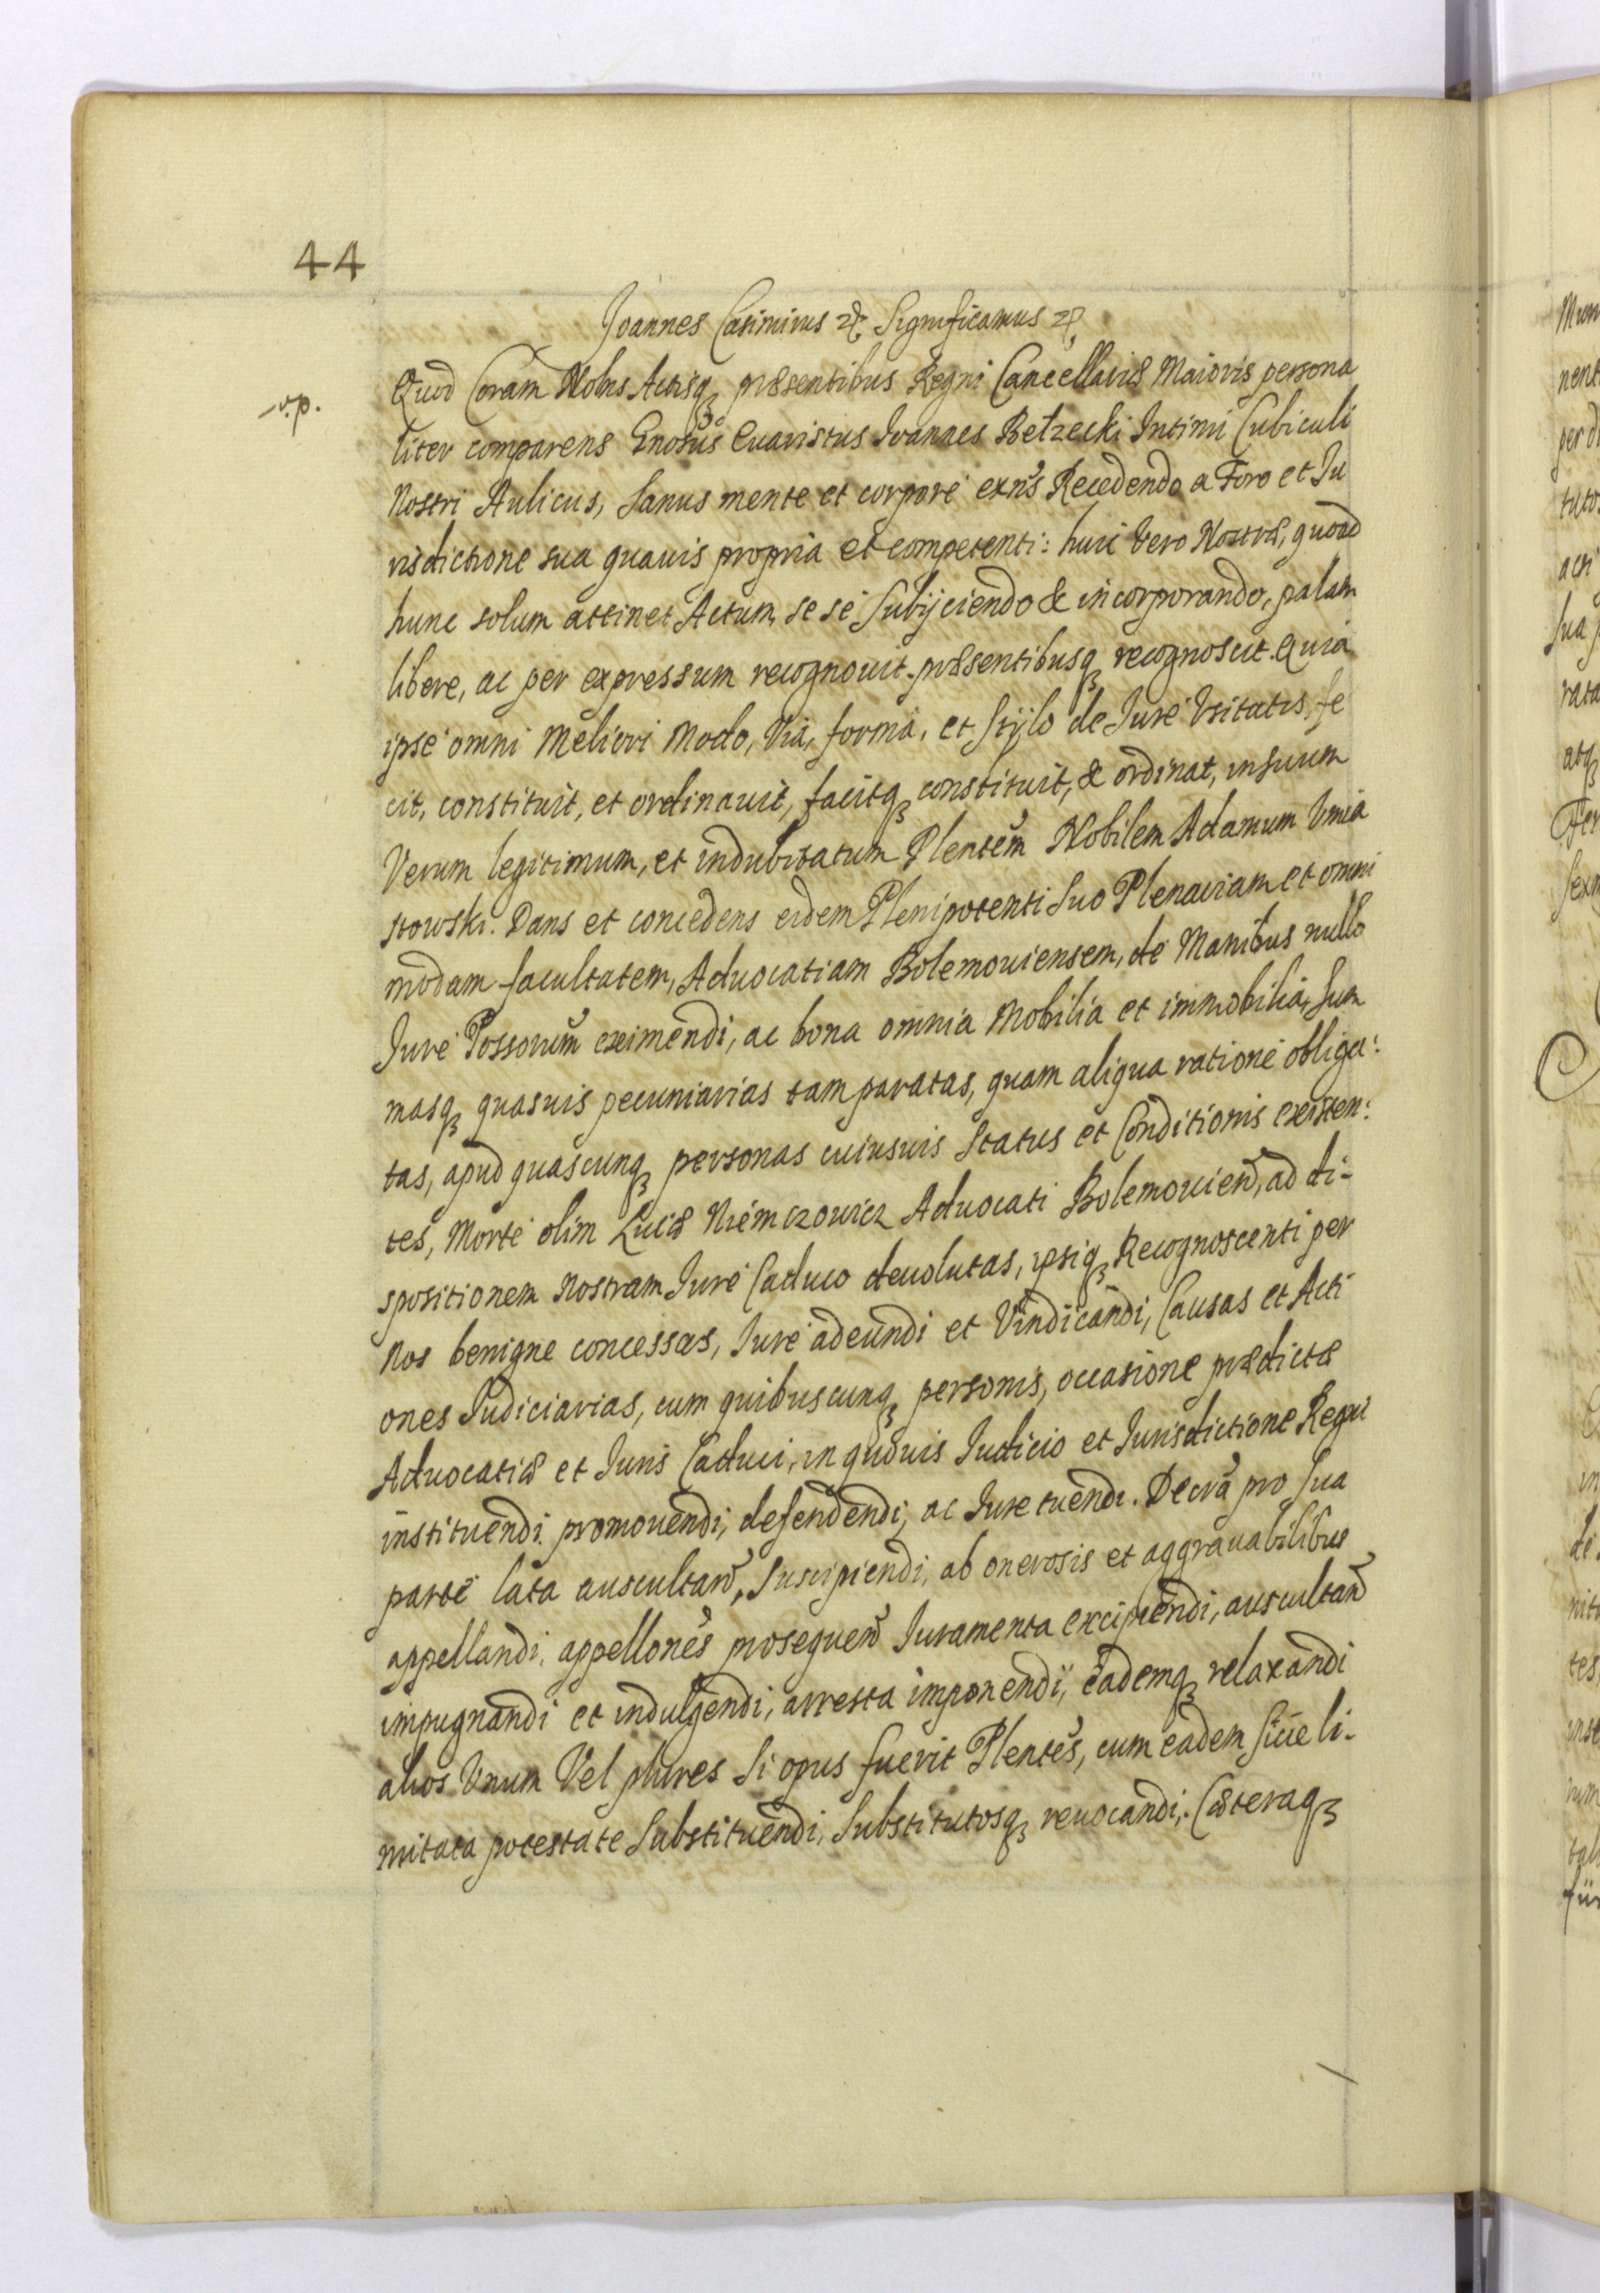 44
Joannes Casimirus &c. Significamus &c.
v.p.
Quod Coram Nobis Actisq3 præsentibus Regni Cancellariæ Maioris persona
liter comparens Gnosus Euaristus Ioannes Betzecki Intimi Cubiculi
Nostri Aulicus, Sanus mente et corpore exns Recedendo a Foro et Iu
risdictione sua quauis propria et competenti: huic Vero Nostræ, quoad
hunc solum attinet Actum, se se Subijciendo & incorporando, palam
libere, ac per expressum recognouit præsentibusq3 recognoscit. Quia
ipse omni Meliori Modo, Via, forma, et Stylo de Iure Vsitatis, fe
cit, constituit, et ordinauit, facitq3 constituit, & ordinat, in suum
Verum legitimum, et indubitatum Plentem Nobilem Adamum Vmia
stowski. Dans et concedens eidem Plenipotenti Suo Plenariam et omni
modam facultatem, Aduocatiam Bolemouiensem, de Manibus nullo
Iure Possorum eximendi, ac bona omnia Mobilia et immobilia, Sum
masq3 quasuis pecuniarias tam paratas, quam aliqua ratione obliga:
tas, apud quascunq3 personas cuiusuis Status et Conditionis existen:
tes, Morte olim Lucæ Niemczowicz Aduocati Bolemouien, ad di-
spositionem Nostram Iure Caduco deuolutas, ipsiq3 Recognoscenti per
Nos benigne concessas, Iure adeundi et Vindicandi, Causas et Acti
ones Iudiciarias, cum quibuscunq3 personis, occasione prædictæ
Aduocatiæ et Iuris Caduci, in quouis Iudicio et Iurisdictione Regni
instituendi promouendi, defendendi, ac Iure tuendi. Decra pro Sua
parte lata auscultan, Suscipiendi, ab onerosis et aggrauabilibus
appellandi, appellones prosequen Iuramenta excipiendi, auscultan
impugnandi et indulgendi, arresta imponendi, eademq3 relaxandi
alios Vnum Vel plures Si opus fuerit Plentes, cum eadem Siue li-
mitata potestate Substituendi, Substitutosq3 reuocandi, Cæteraq3